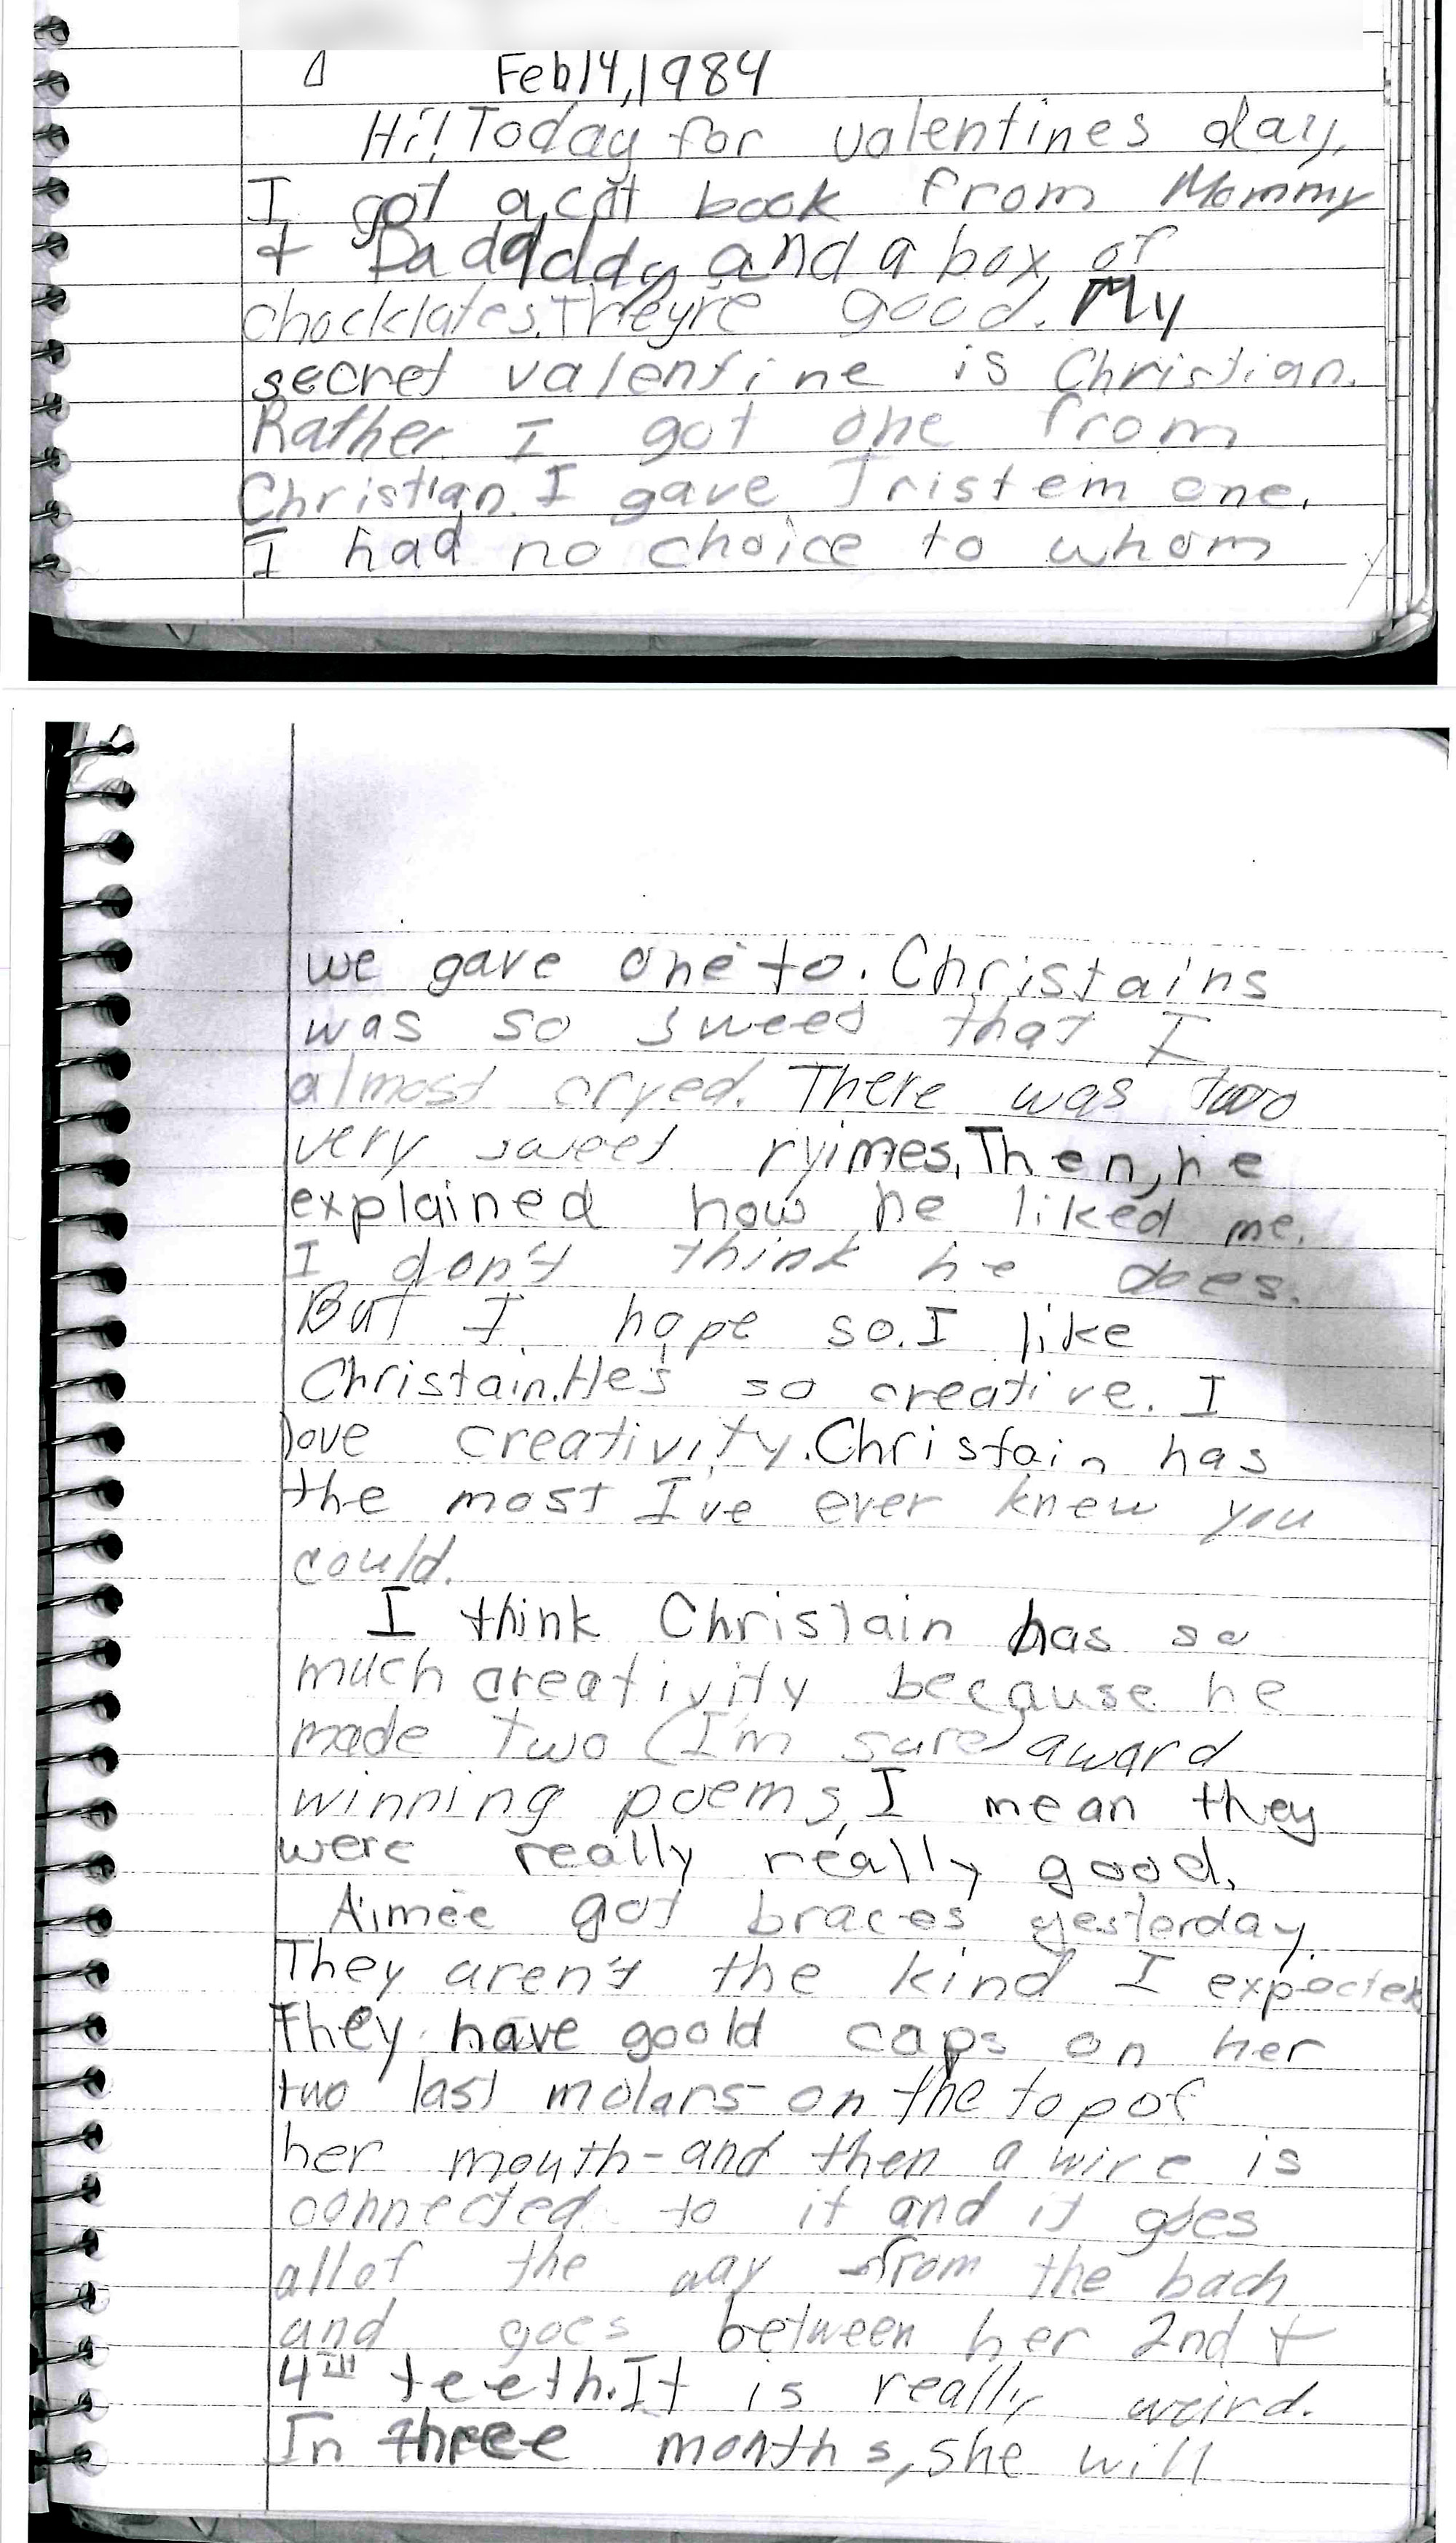 Feb 14, 1984
Hi! Today for valentines day,
I got a cat book from Mommy
+ Dadddy and a box of
chocklates. They're good. My
secret valentine is Christian.
Rather I got one from
Christian. I gave Tristem one.
I had no choice to whom
we gave one to. Christains
was so sweed that I
almost cryed. There was two
very sweet ryimes. Then, he
explained how he liked me.
I don't think he does.
But I hope so. I like
Christain. He's so creative. I
love creativity. Christain has
the most I've ever knew you
could.
I think Christain has so
much creativity because he
made two (I'm sure) award
winning poems, I mean they
were really really good.
Aimée got braces yesterday.
They aren't the kind I expected
They have goold caps on her
two last molars - on the top of
her mouth - and then a wire is
connected to it and it goes
all of the way from the bach
and goes between her 2nd +
4TH teeth. It is really weird.
In three months, she will